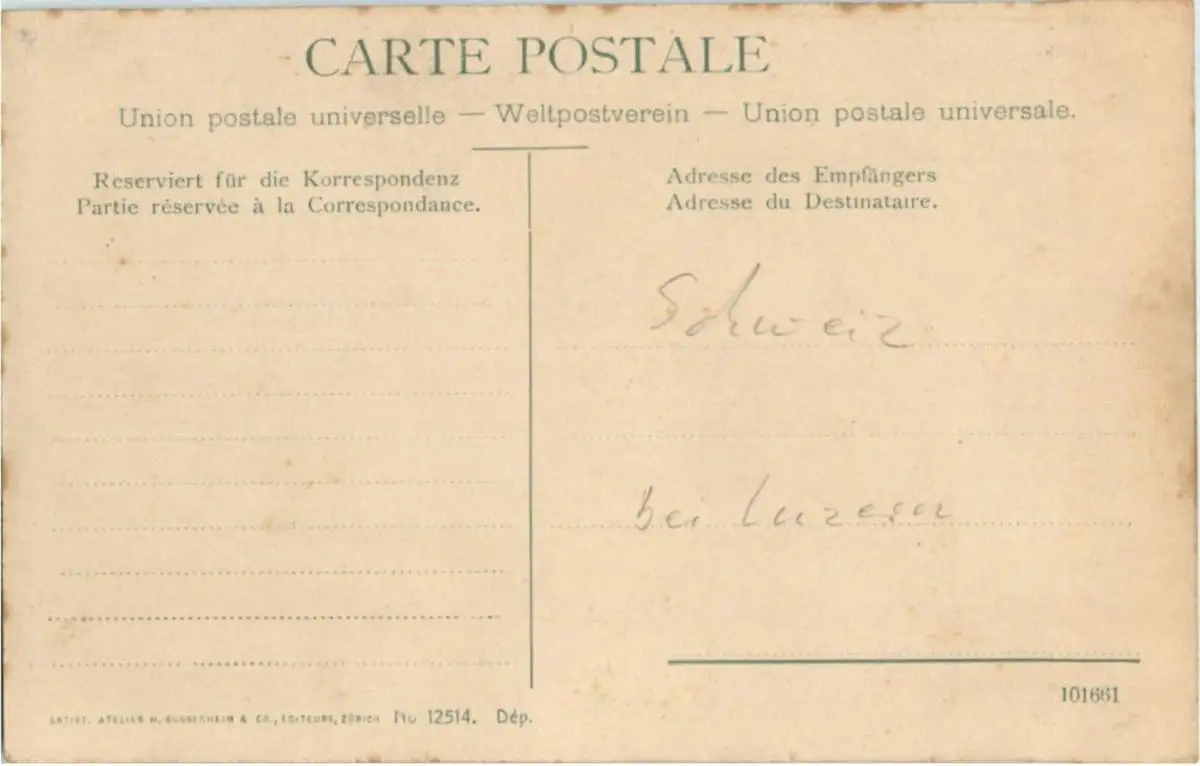 CARTE POSTALE
Union postale universelle — Weltpostverein — Union postale universale.
Reserviert für die Korrespondenz
Partie réservée à la Correspondance.
Adresse des Empfängers
Adresse du Destinataire.
Schweiz
bei Luzern
101661
ARTIST. ATELIER H. GUGGENHEIM & CO., EDITEURS, ZÜRICH No 12514. Dép.